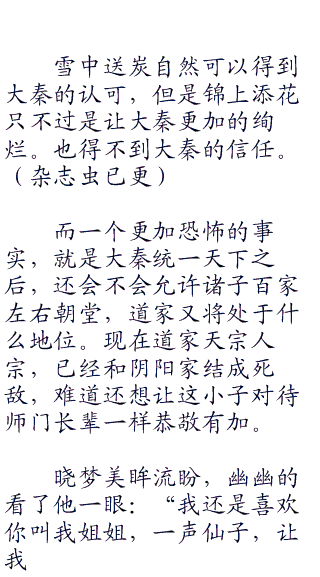 雪中送炭自然可以得到
大秦的认可，但是锦上添花
只不过是让大秦更加的绚
烂。也得不到大秦的信任。
（杂志虫已更）
而一个更加恐怖的事
实，就是大秦统一天下之
后，还会不会允许诸子百家
左右朝堂，道家又将处于什
么地位。现在道家天宗人
宗，已经和阴阳家结成死
敌，难道还想让这小子对待
师门长辈一样恭敬有加。
晓梦美眸流盼，幽幽的
看了他一眼：“我还是喜欢
你叫我姐姐，一声仙子，让
我